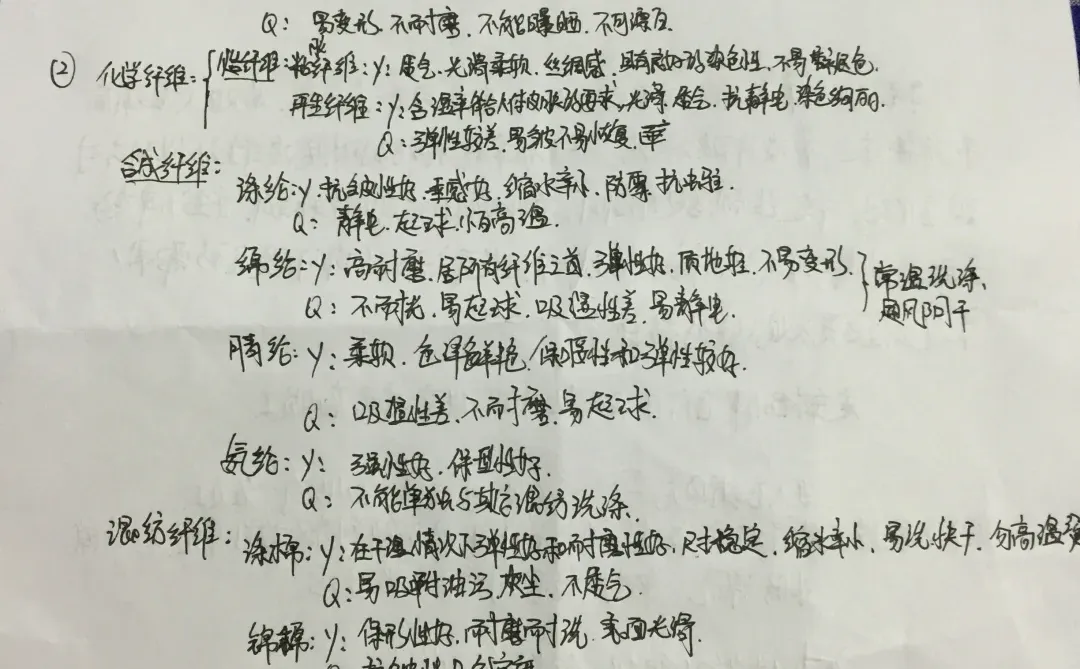 Q: 易变形、不耐磨、不能曝晒、不可漂白
② 化学纤维: 纤维: 粘纤维: y: 透气、光滑柔软、丝绸感、具有良好的染色性、不易褪色.
再生纤维: y: 含湿率符合人体皮肤的要求、光滑、透气、抗静电、染色绚丽.
Q: 弹性较差、易皱不易恢复
合成纤维:
涤纶: y: 抗皱性好、垂感好、缩水率小、防霉、抗虫蛀.
Q: 静电、起球、怕高温.
绵纶: y: 高耐磨、居所有纤维之首、弹性好、质地轻、不易变形. 常温洗涤、
Q: 不耐光、易起球、吸湿性差、易静电. 通风阴干
腈纶: y: 柔软、色泽鲜艳、保暖性和弹性较好.
Q: 吸湿性差、不耐磨、易起球.
氨纶: y: 弹性好、保型性好.
Q: 不能单独与其它混纺洗涤.
混纺纤维: 涤棉: y: 在干湿情况下弹性好和耐磨性好、尺寸稳定、缩水率小、易洗快干、勿高温
Q: 易吸附油污、灰尘、不透气.
锦棉: y: 保形性好、耐磨耐洗、表面光滑.